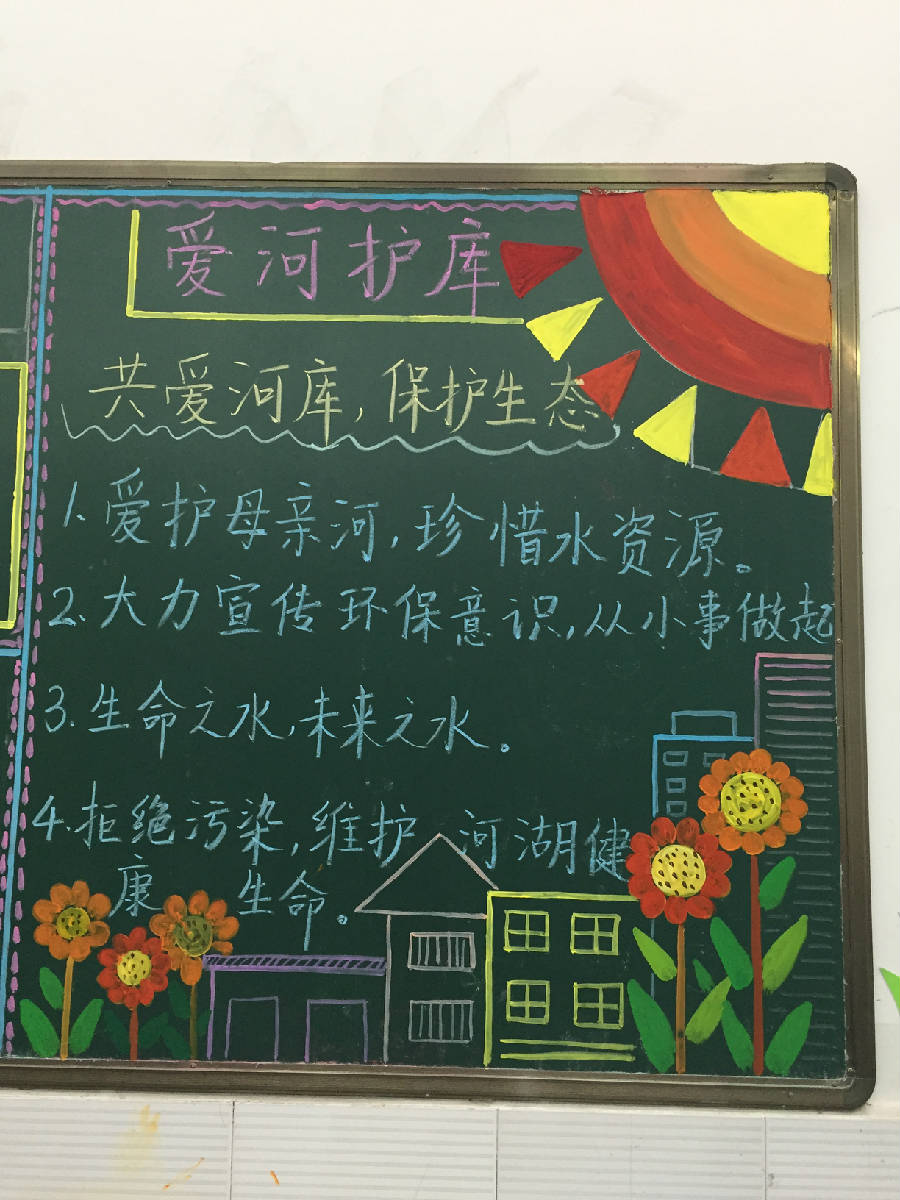 爱河护库
共爱河库,保护生态
1.爱护母亲河,珍惜水资源。
2.大力宣传环保意识,从小事做起
3.生命之水,未来之水。
4.拒绝污染,维护 河湖健
康 生命。